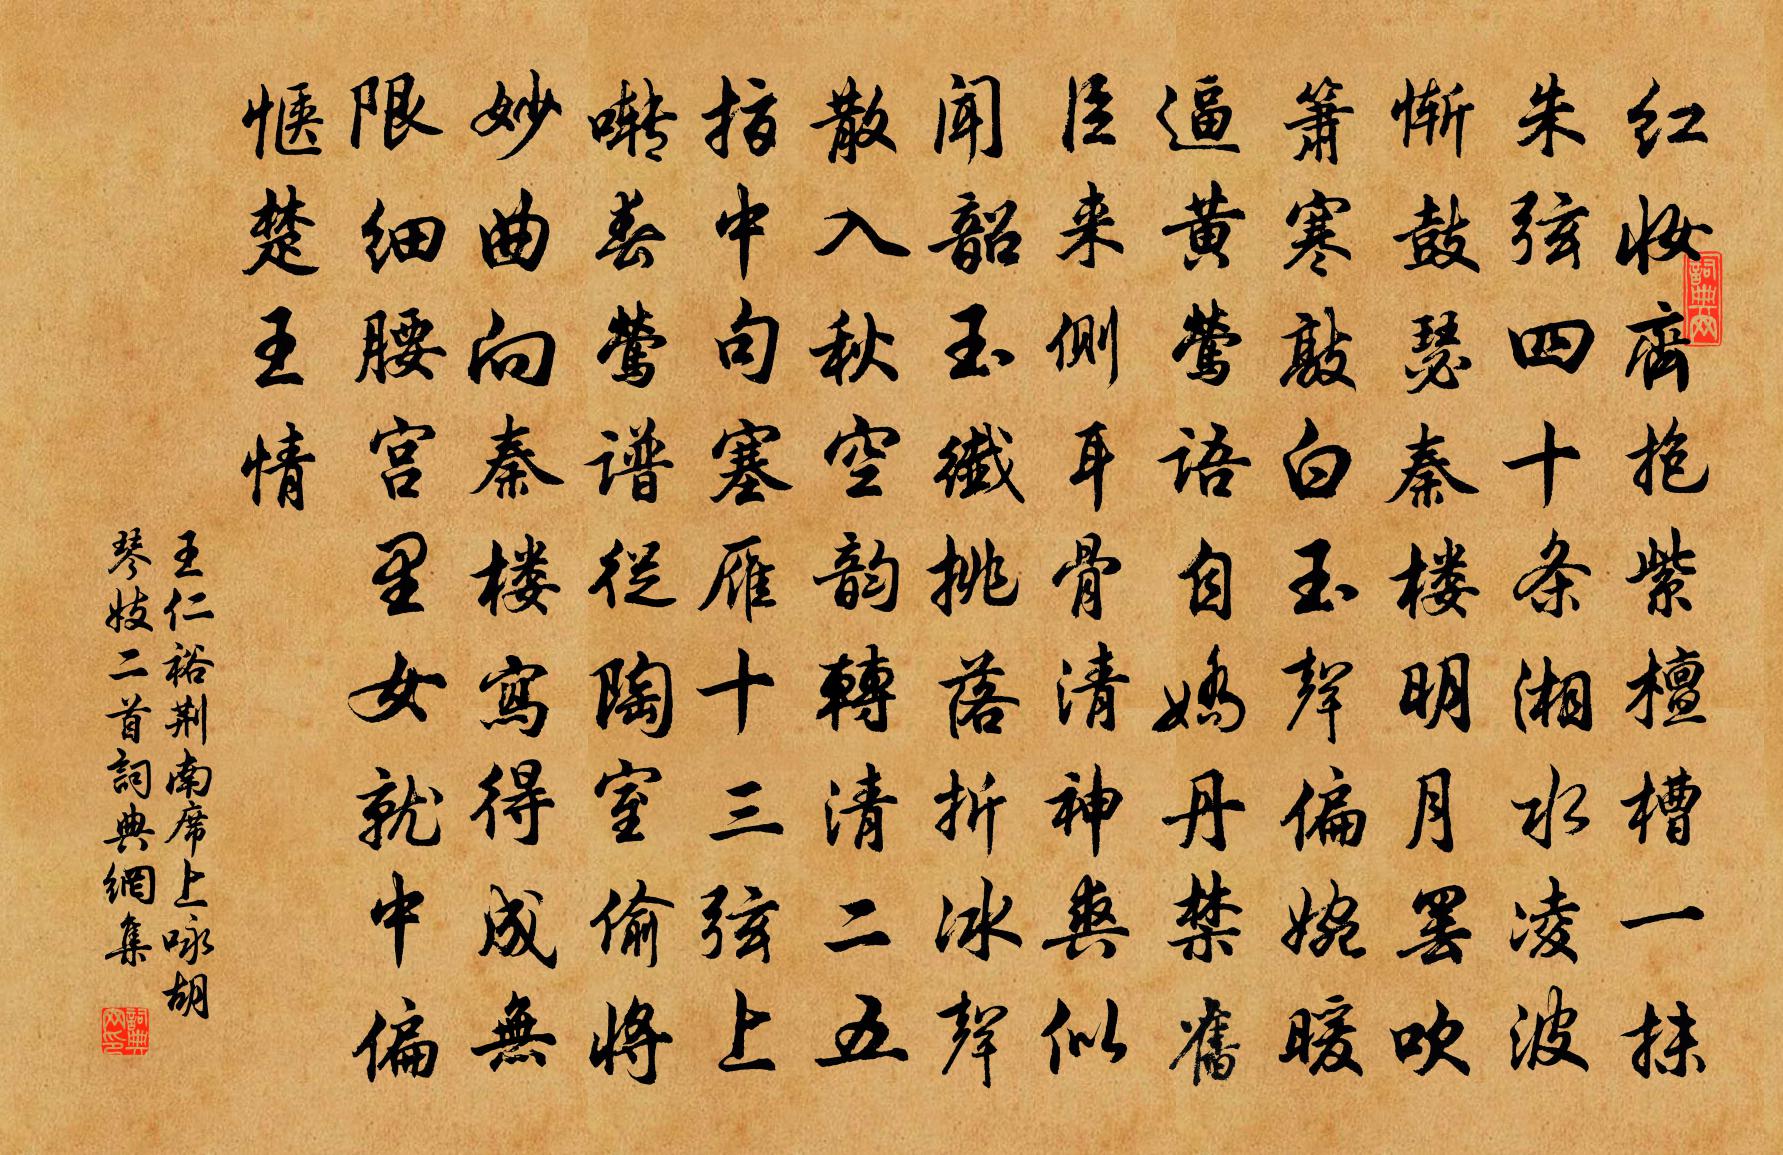 红妆齊抱紫檀槽一抹
朱弦四十条湘水凌波
惭鼓瑟秦楼明月罢吹
箫寒敲白玉聲偏婉暖
逼黄鶯语自娇丹禁舊
臣来侧耳骨清神爽似
闻韶玉纖挑落折冰聲
散入秋空韵轉清二五
指中句塞雁十三弦上
啭春鶯谱從陶室偷将
妙曲向秦楼寫得成無
限细腰宫里女就中偏
惬楚王情
王仁裕荆南席上咏胡
琴妓二首詞典網集
詞典网
詞典网印